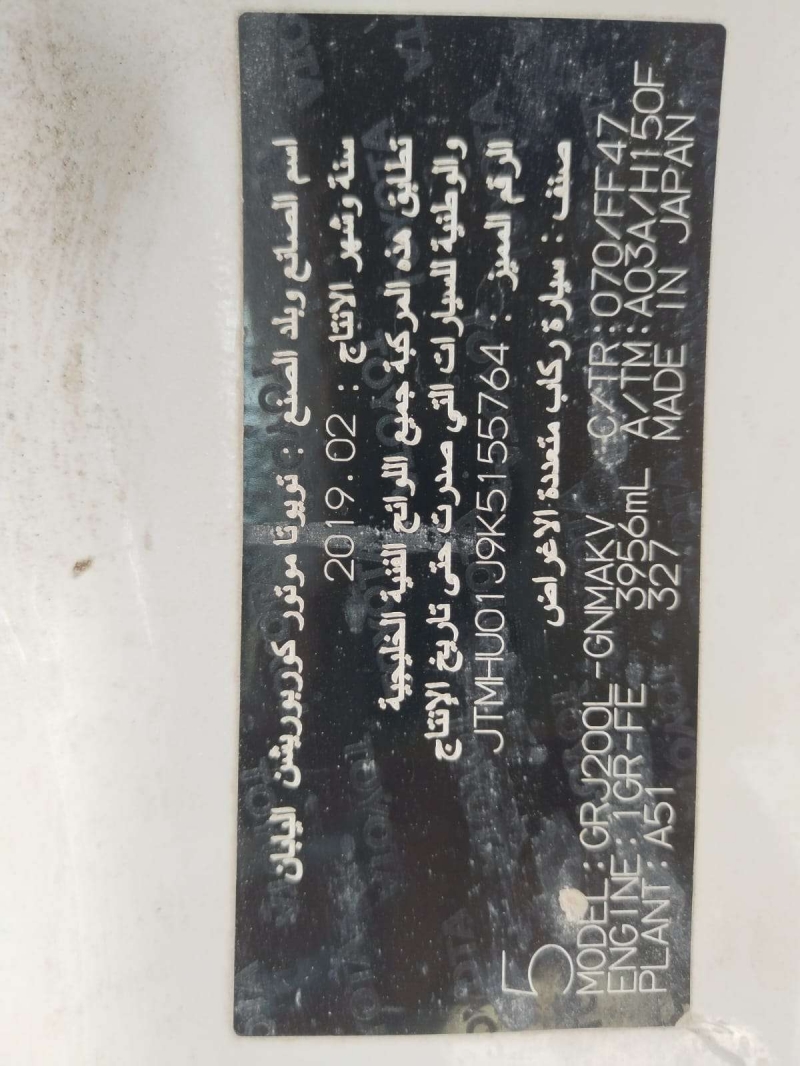 اسم الصانع وبلد الصنع : تويوتا موتور كوربوريشن اليابان
سنة وشهر الانتاج : 2019.02
تطابق هذه المركبة جميع اللوائح الفنية الخليجية
والوطنية للسيارات التي صدرت حتى تاريخ الإنتاج
الرقم المميز : JTMHU01J9K5155764
صنف : سيارة ركاب متعددة الاغراض
5
MODEL : GRJ200L-GNMAKV C/TR : 070/FF47
ENGINE : 1GR-FE 3956mL A/TM : A03A/H150F
PLANT : A51 327 MADE IN JAPAN